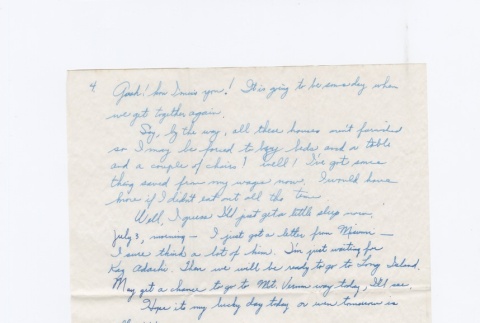 4 Gosh! how I miss you! It is going to be someday when
we get together again.
Say, by the way, all these houses ain't furnished
so I may be forced to buy beds and a table
and a couple of chairs! Well! I've got some
thing saved from my wages now. I would have
more if I didn't eat out all the time
Well, I guess I'll just get a little sleep now.
July 3, morning — I just got a letter from
I sure think a lot of him. I'm just waiting for
Kay Adachi. Then we will be ready to go to Long Island.
May get a chance to go to Mt. Vernon way today, I'll see.
Hope its my lucky day today or even tomorrow is